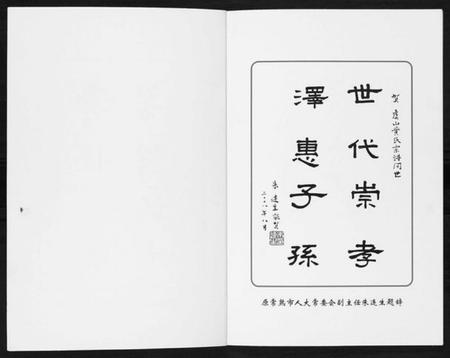 贺虞山黄氏宗谱问世
世代崇孝
澤惠子孫
朱连生敬贺
二〇一八年八月
原常熟市人大常委会副主任朱连生题辞